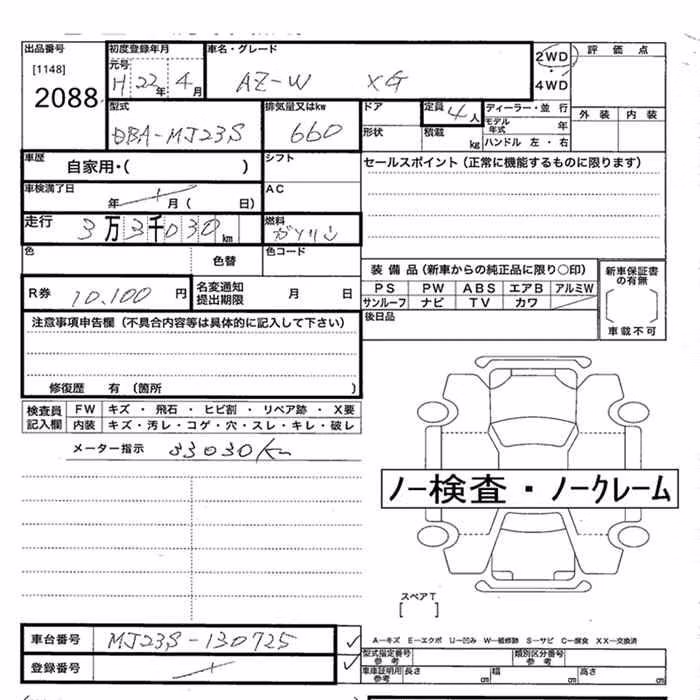 出品番号 初度登録年月 車名・グレード 評価点
[1148] 元号 H 22年 4月 AZ-W XG 2WD
2088 4WD
型式 排気量又はkw ドア 定員 4人 ディーラー・並行 外装 内装
DBA-MJ23S 660 形状 積載 kg モデル年式 年
ハンドル 左・右
車歴 自家用・( ) シフト セールスポイント(正常に機能するものに限ります)
車検満了日 年 月( 日) AC
走行 3万3千030km 燃料 ガソリン
色 色替 色コード
装備品(新車からの純正品に限り○印) 新車保証書の有無
R券 10,100円 名変通知提出期限 月 日 PS PW ABS エアB アルミW
サンルーフ ナビ TV カワ 車載不可
注意事項申告欄(不具合内容等は具体的に記入して下さい) 後日品
修復歴 有(箇所 )
検査員記入欄 FW キズ・飛石・ヒビ割・リペア跡・X要
内装 キズ・汚レ・コゲ・穴・スレ・キレ・破レ
メーター指示 33030Km
ノー検査・ノークレーム
スペアT
[ ]
車台番号 MJ23S-130725 A-キズ E-エクボ U-凹み W-補修跡 S-サビ C-腐食 XX-交換済
登録番号 型式指定番号 参考 類別区分番号 参考
車庫証明用 参考 長さ cm 幅 cm 高さ cm